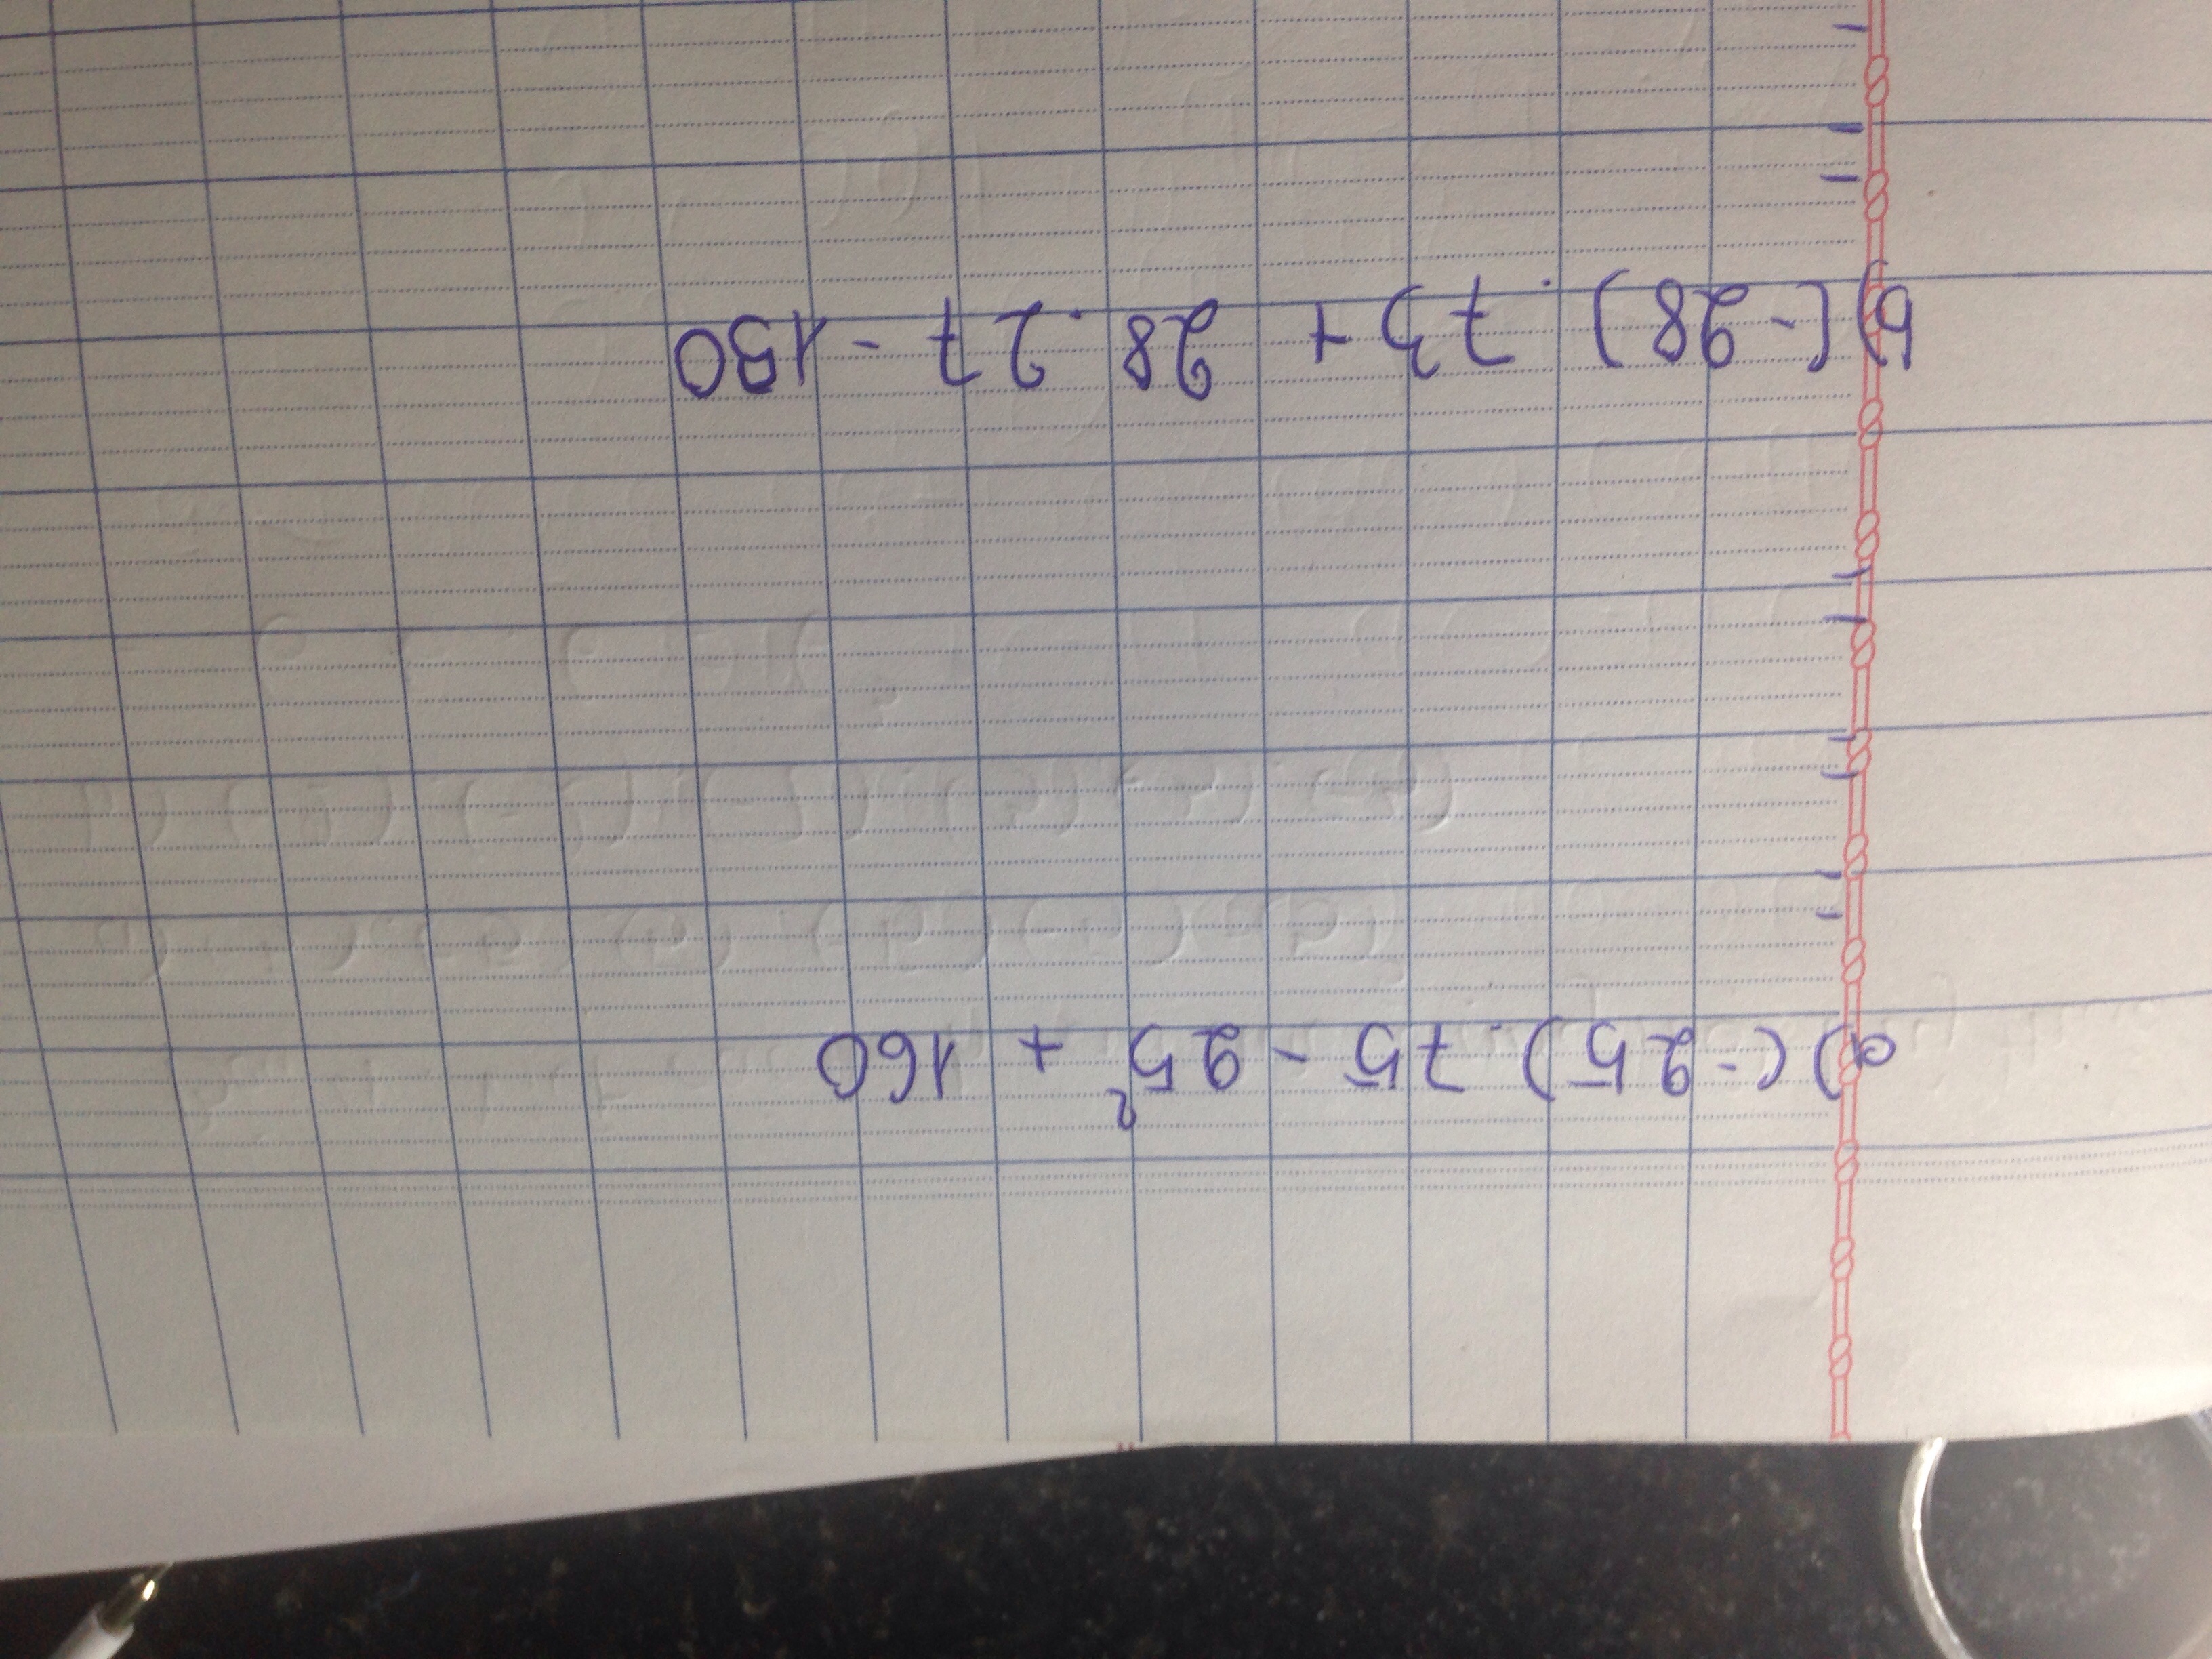 a) (-25).75 - 25² + 160
b) (-28).73 + 28.27 - 150